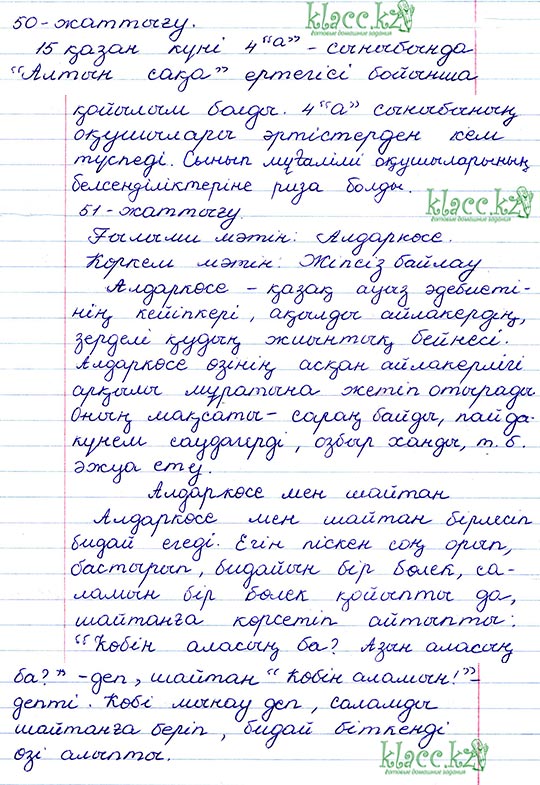 50-жаттығу.
klacc.kz
готовые домашние задания
15 қазан күні 4 "а" - сыныбында
"Алтын сақа" ертегісі бойынша
қойылым болды. 4 "а" сыныбының
оқушылары әртістерден кем
түспеді. Сынып мұғалімі оқушыларының
белсенділіктеріне риза болды.
klacc.kz
готовые домашние задания
51-жаттығу
Ғылыми мәтін: Алдаркөсе.
Көркем мәтін: Жіпсіз байлау
Алдаркөсе - қазақ ауыз әдебиеті-
нің кейіпкері, ақылды айлакердің,
зерделі қудың жиынтық бейнесі.
Алдаркөсе өзінің асқан айлакерлігі
арқылы мұратына жетіп отырады
Оның мақсаты - сараң байды, пайда-
күнем саудагерді, озбыр ханды, т.б.
әжуа ету.
Алдаркөсе мен шайтан
Алдаркөсе мен шайтан бірлесіп
бидай егеді. Егін піскен соң орып,
бастырып, бидайын бір бөлек, са-
ламын бір бөлек қойыпты да,
шайтанға көрсетіп айтыпты:
"Көбін аласың ба? Азын аласың
ба?" - деп, шайтан "Көбін аламын!" -
депті. Көбі мынау деп, саламды
шайтанға беріп, бидай біткенді
өзі алыпты.
klacc.kz
готовые домашние задания